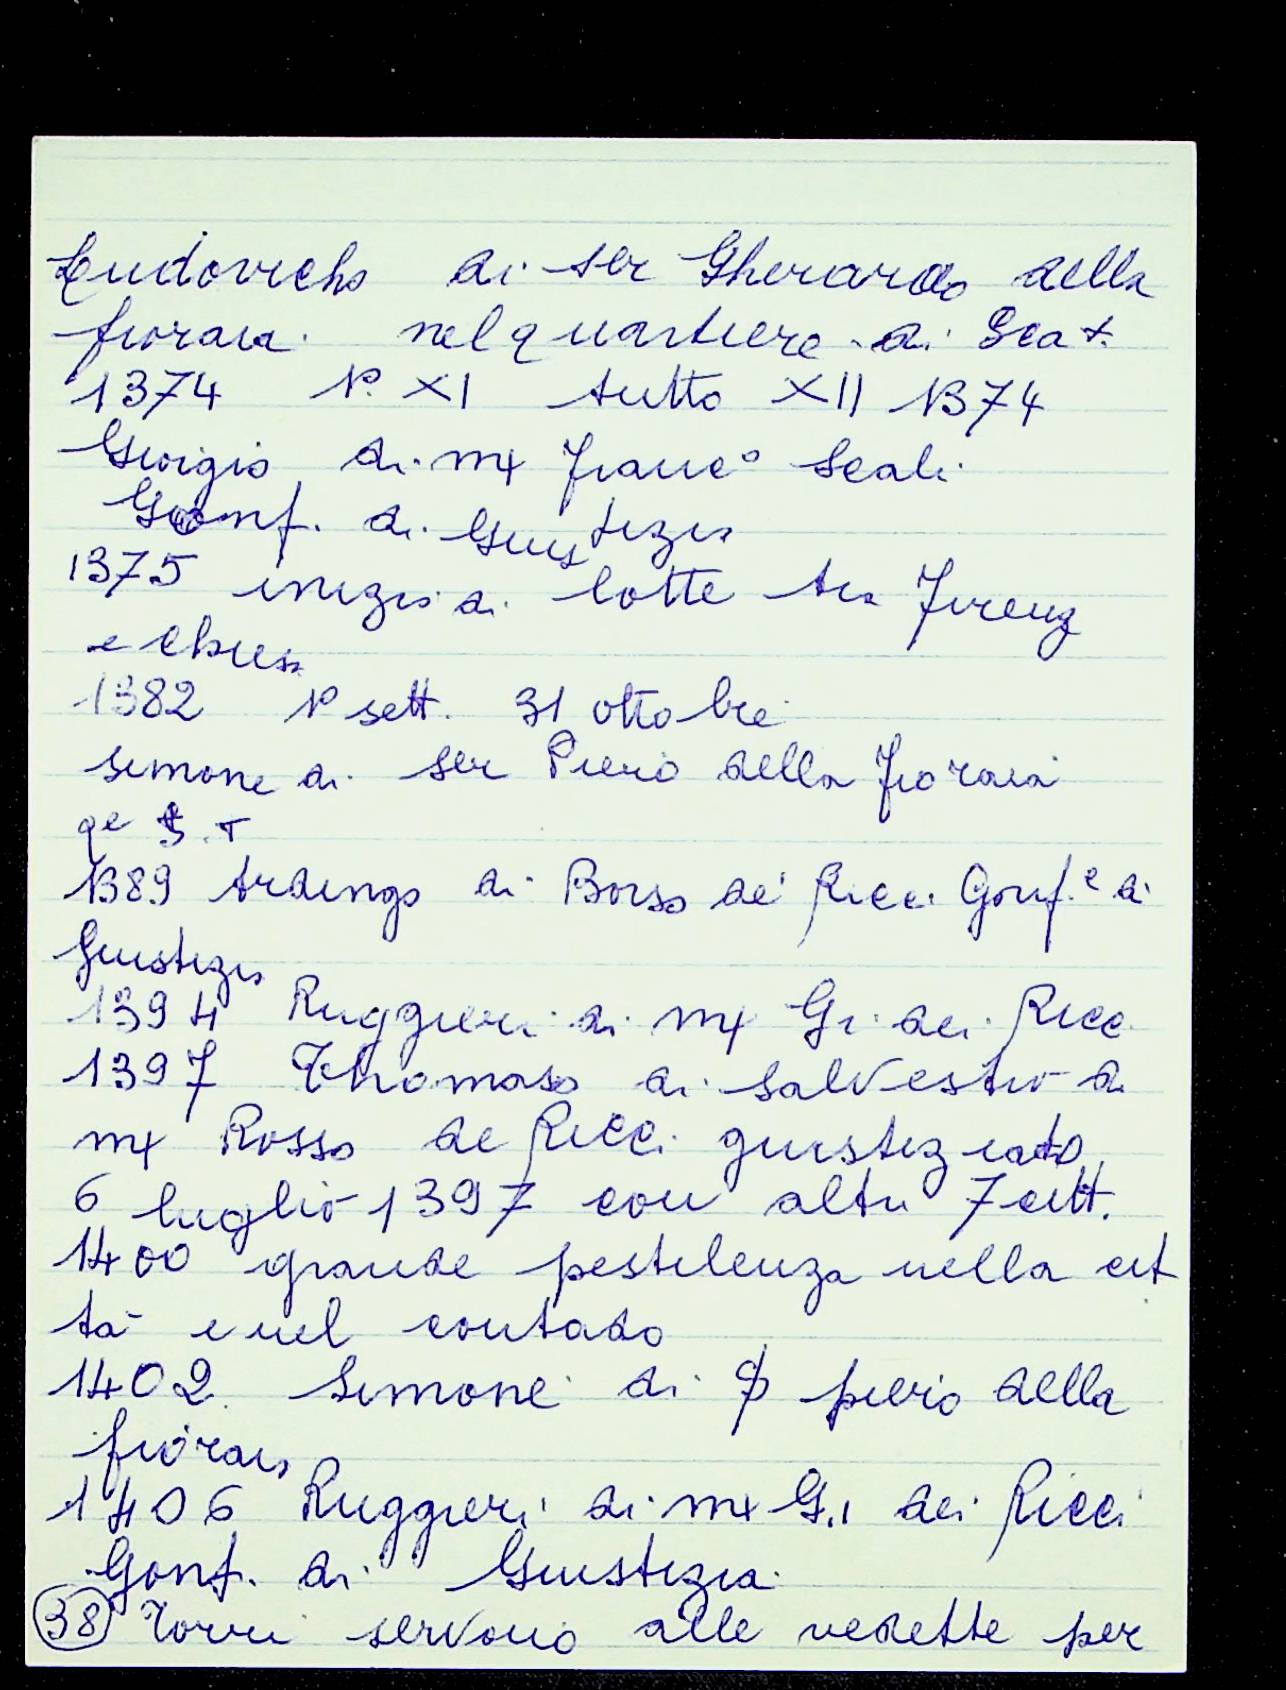 Ludovicho di ser Gherardo della
fioraia nel quartiere di
1374 1° XI tutto XII 1374
Giorgio di mx Franc° Scali
Gonf. di Giustizia
1375 inizio di lotte tra Firenz
e Chiesa
1382 1° sett. 31 ottobre
Simone di ser Piero della Fioraia
1389 Ardingo di Borso de' Ricci Gonf.e di
Giustizia
1394 Ruggieri di mx G. dei Ricc
1397 Thomaso di Salvestro di
mx Rosso de Ricci giustiziato
6 luglio 1397 con altri 7 citt.
1400 grande pestilenza nella cit
tà e nel contado
1402 Simone di piero della
fioraia
1406 Ruggieri di mx G. dei Ricci
Gonf. di Giustizia
38 Torri servono alle vedette per